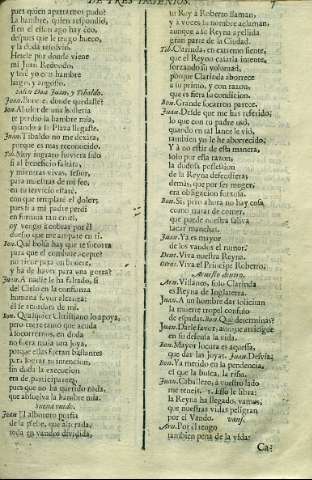 DE TRES INGENIOS. 7
pues quien apartarnos pudo?
La hambre, quien respondió,
si en el eston ago hay eco,
despues que le traigo hueco,
y la duda resolviò.
Hetele por donde viene
mi Juan Redondo,
y hue yo con hambre
largo, y angosto.
Salen Don Juan, y Tibaldo.
Juan. Bonete, donde quedaste?
Bon. Al olor de una hosteria
te perdiò la hambre mia,
quando à la Plaza llegaste.
Juan. Tibaldo no me dexàra,
porque es mas reconocido.
Tib. Muy ingrato huviera sido
si al beneficio faltàra,
y mientras vivas, señor,
para muestras de mi fee,
en tu servicio estarè,
con que templarè el dolor;
pues si à mi padre perdì
en fortuna tan cruel,
oy vengo à cobrar por èl
dueño que me ampare en ti.
Bon. Què bolsa hay que te socorra
para que el combite acepte?
no tiene para un bonete,
y ha de haver para una gorra?
Juan. A nadie le ha faltado, si
del Cielo en la confianza
humana favor alcanza:
èl se acordarà de mi.
Bon. Qualquier Christiano lo apoya,
pero mereciamos que acuda
à socorrernos, sin duda
no fuera mala una joya,
porque ellas fueran bastantes
para lograr tu intencion,
sin duda la execucion
era de participantes,
pues que no ha querido nada,
que absuelva la hambre mia.
Suena ruido.
Juan. El alboroto porfia
de la plebe, que alterada,
toda en vandos dividida,
un Rey à Roberto llaman,
y à veces su nombre aclaman,
aunque à la Reyna apellida
gran parte de la Ciudad.
Tib. Clarinda, en extremo siente,
que el Reyno casarla intente,
forzando su voluntad,
porque Clarinda aborrece
à tu primo, y con razon,
que es fiera la condicion.
Bon. Grande socarron parece.
Juan. Desde que me has referido,
lo que con tu padre usò,
quando en tal lance le viò,
tambien yo le he aborrecido,
Y à no estàr de esta manera,
solo por esta razon,
la dudosa possession
de la Reyna defendiera;
demàs, que por ser muger,
era obligacion forzosa.
Bon. Si, pero ahora no hay cosa
como tratar de comer,
que puede nuestra saliva
sacar manchas.
Juan. Ya es mayor
de los vandos el rumor.
Dent. Viva nuestra Reyna.
Otros. Viva el Principe Roberto.
Arnesto dentro.
Arn. Villanos, solo Clarinda
es Reyna de Inglaterra.
Juan. A un hombre dar solicitan
la muerte tropel confuso
de espadas. Bon. Què determinas?
Juan. Darle favor, aunque arriesgue
en su defensa la vida.
Bon. Mayor locura es aquesta,
que dar las joyas. Juan. Desvia.
Bon. Ya metido en la pendencia,
el que la busca, la riña.
Juan. Cavallero, à vuestro lado
me teneis. Esso se libra:
la Reyna ha llegado, vamos,
que nuestras vidas peligran
por el Vando. vanse.
Arn. Por el riesgo
tambien pena de la vida:
Ca-